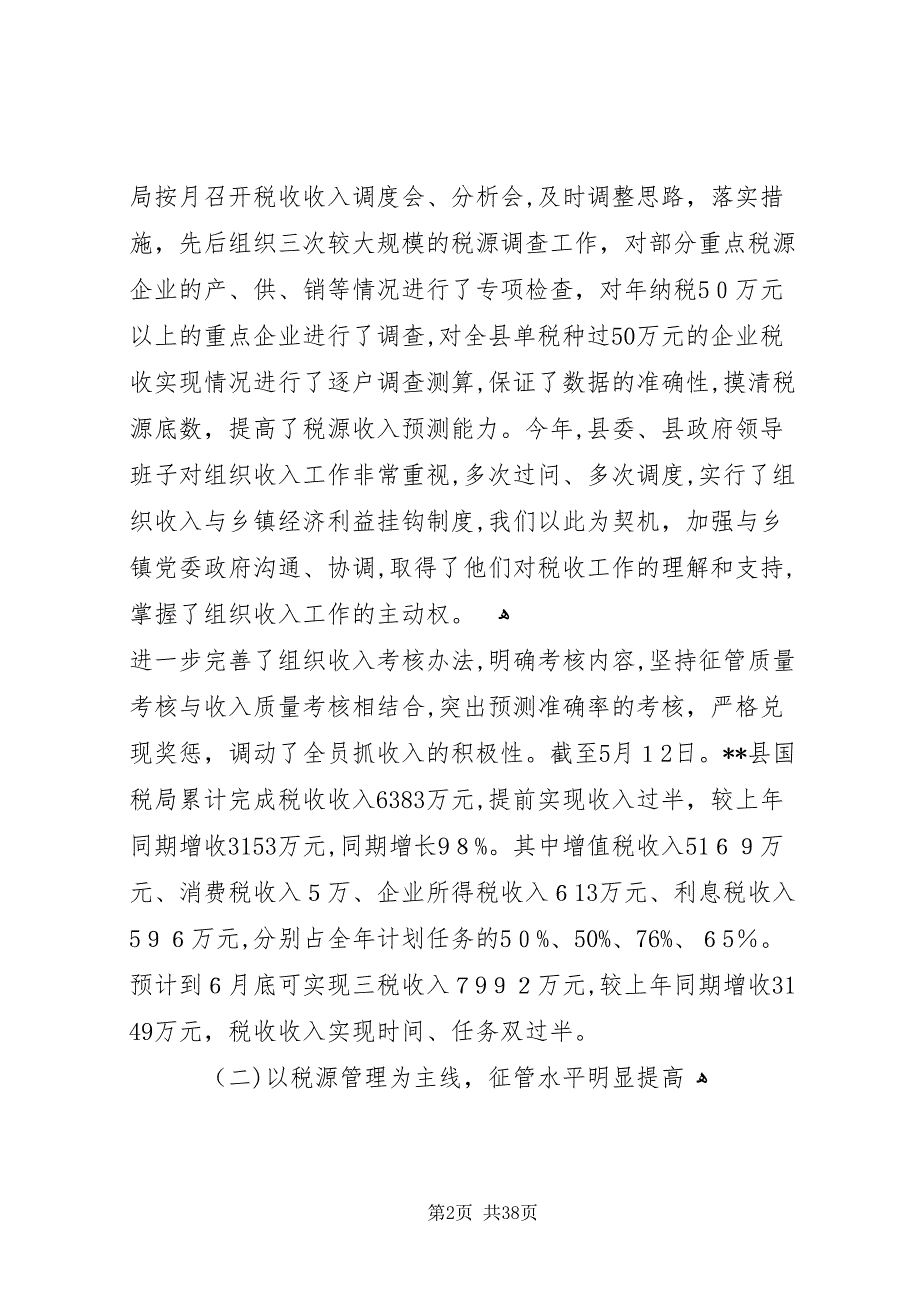 局按月召开税收收入调度会、分析会,及时调整思路，落实措
施，先后组织三次较大规模的税源调查工作，对部分重点税源
企业的产、供、销等情况进行了专项检查，对年纳税50万元
以上的重点企业进行了调查,对全县单税种过50万元的企业税
收实现情况进行了逐户调查测算,保证了数据的准确性,摸清税
源底数，提高了税源收入预测能力。今年,县委、县政府领导
班子对组织收入工作非常重视,多次过问、多次调度,实行了组
织收入与乡镇经济利益挂钩制度,我们以此为契机，加强与乡
镇党委政府沟通、协调,取得了他们对税收工作的理解和支持,
掌握了组织收入工作的主动权。 ﻫ
进一步完善了组织收入考核办法,明确考核内容,坚持征管质量
考核与收入质量考核相结合,突出预测准确率的考核，严格兑
现奖惩，调动了全员抓收入的积极性。截至5月12日。**县国
税局累计完成税收收入6383万元,提前实现收入过半，较上年
同期增收3153万元,同期增长98%。其中增值税收入5169万
元、消费税收入5万、企业所得税收入613万元、利息税收入
596万元,分别占全年计划任务的50%、50%、76%、65%。
预计到6月底可实现三税收入7992万元,较上年同期增收31
49万元，税收收入实现时间、任务双过半。
（二)以税源管理为主线，征管水平明显提高 ﻫ
第2页 共38页